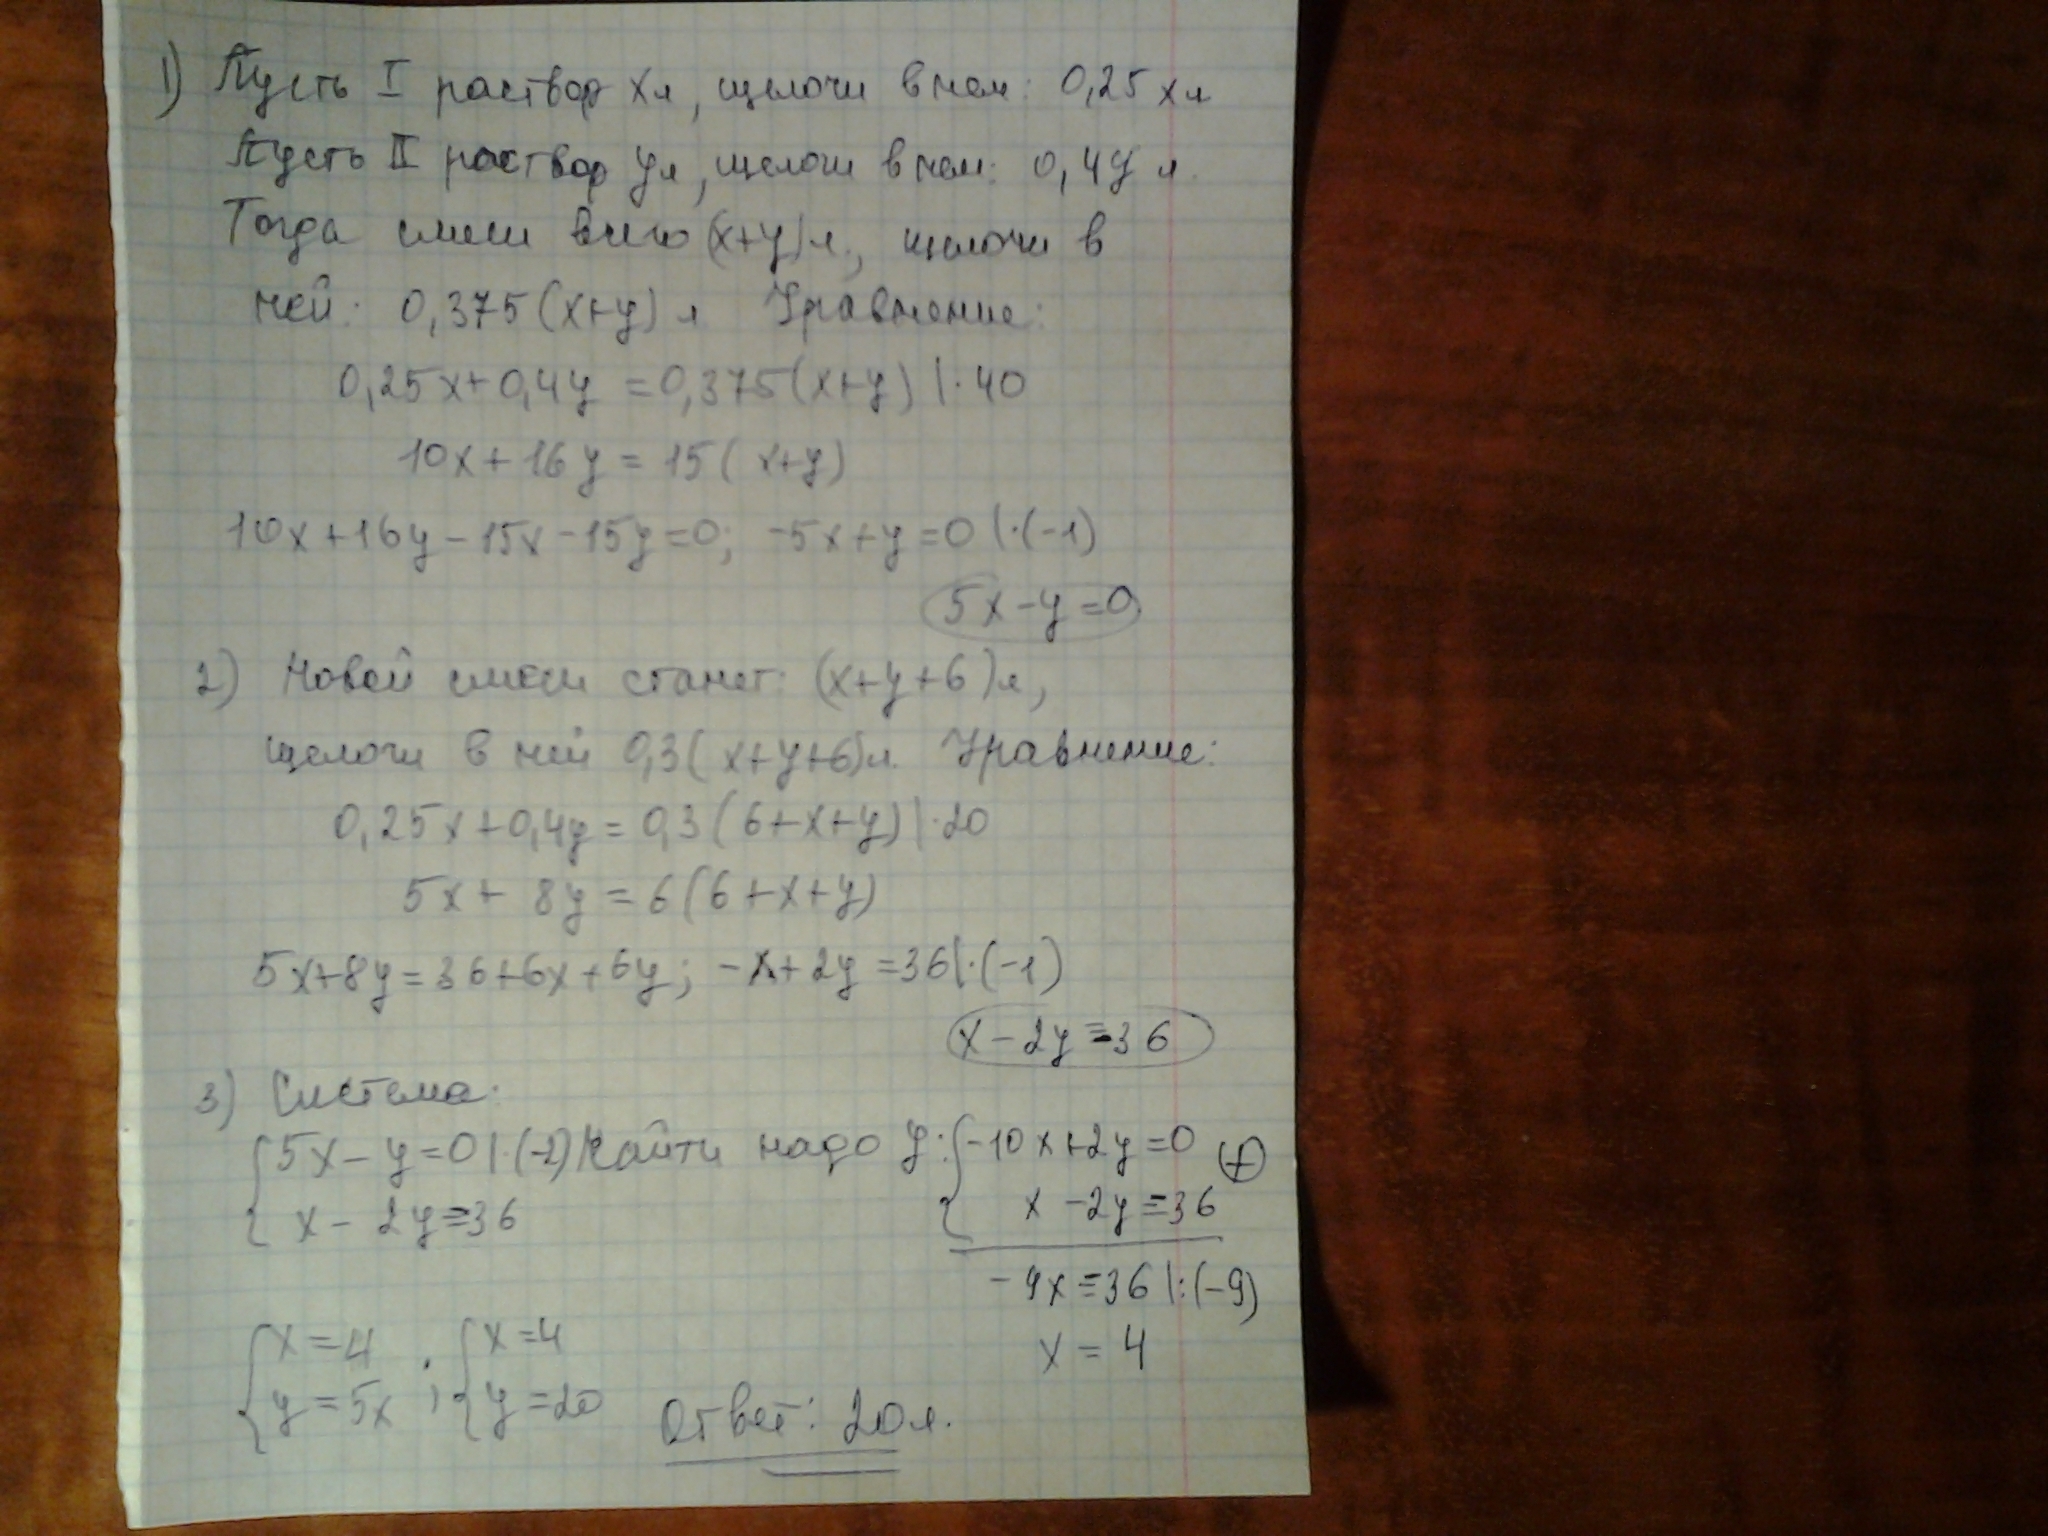 1) Пусть I раствор xл, щелочи в нем: 0,25xл
Пусть II раствор yл, щелочи в нем: 0,4y л.
Тогда смеси всего (x+y)л., щелочи в
ней: 0,375(x+y) л Уравнение:
0,25x+0,4y = 0,375(x+y) |·40
10x+16y = 15(x+y)
10x+16y-15x-15y=0; -5x+y=0 |·(-1)
5x-y=0
2) Новой смеси станет: (x+y+6)л,
щелочи в ней 0,3(x+y+6)л. Уравнение:
0,25x+0,4y = 0,3(6+x+y) |·20
5x+8y = 6(6+x+y)
5x+8y=36+6x+6y; -x+2y=36|·(-1)
x-2y=-36
3) Система:
{5x-y=0|·(-2) Найти надо y: {-10x+2y=0 (+)
x-2y=-36 x-2y=-36
-9x=-36|:(-9)
{x=4 ; {x=4 x=4
y=5x y=20 Ответ: 20л.